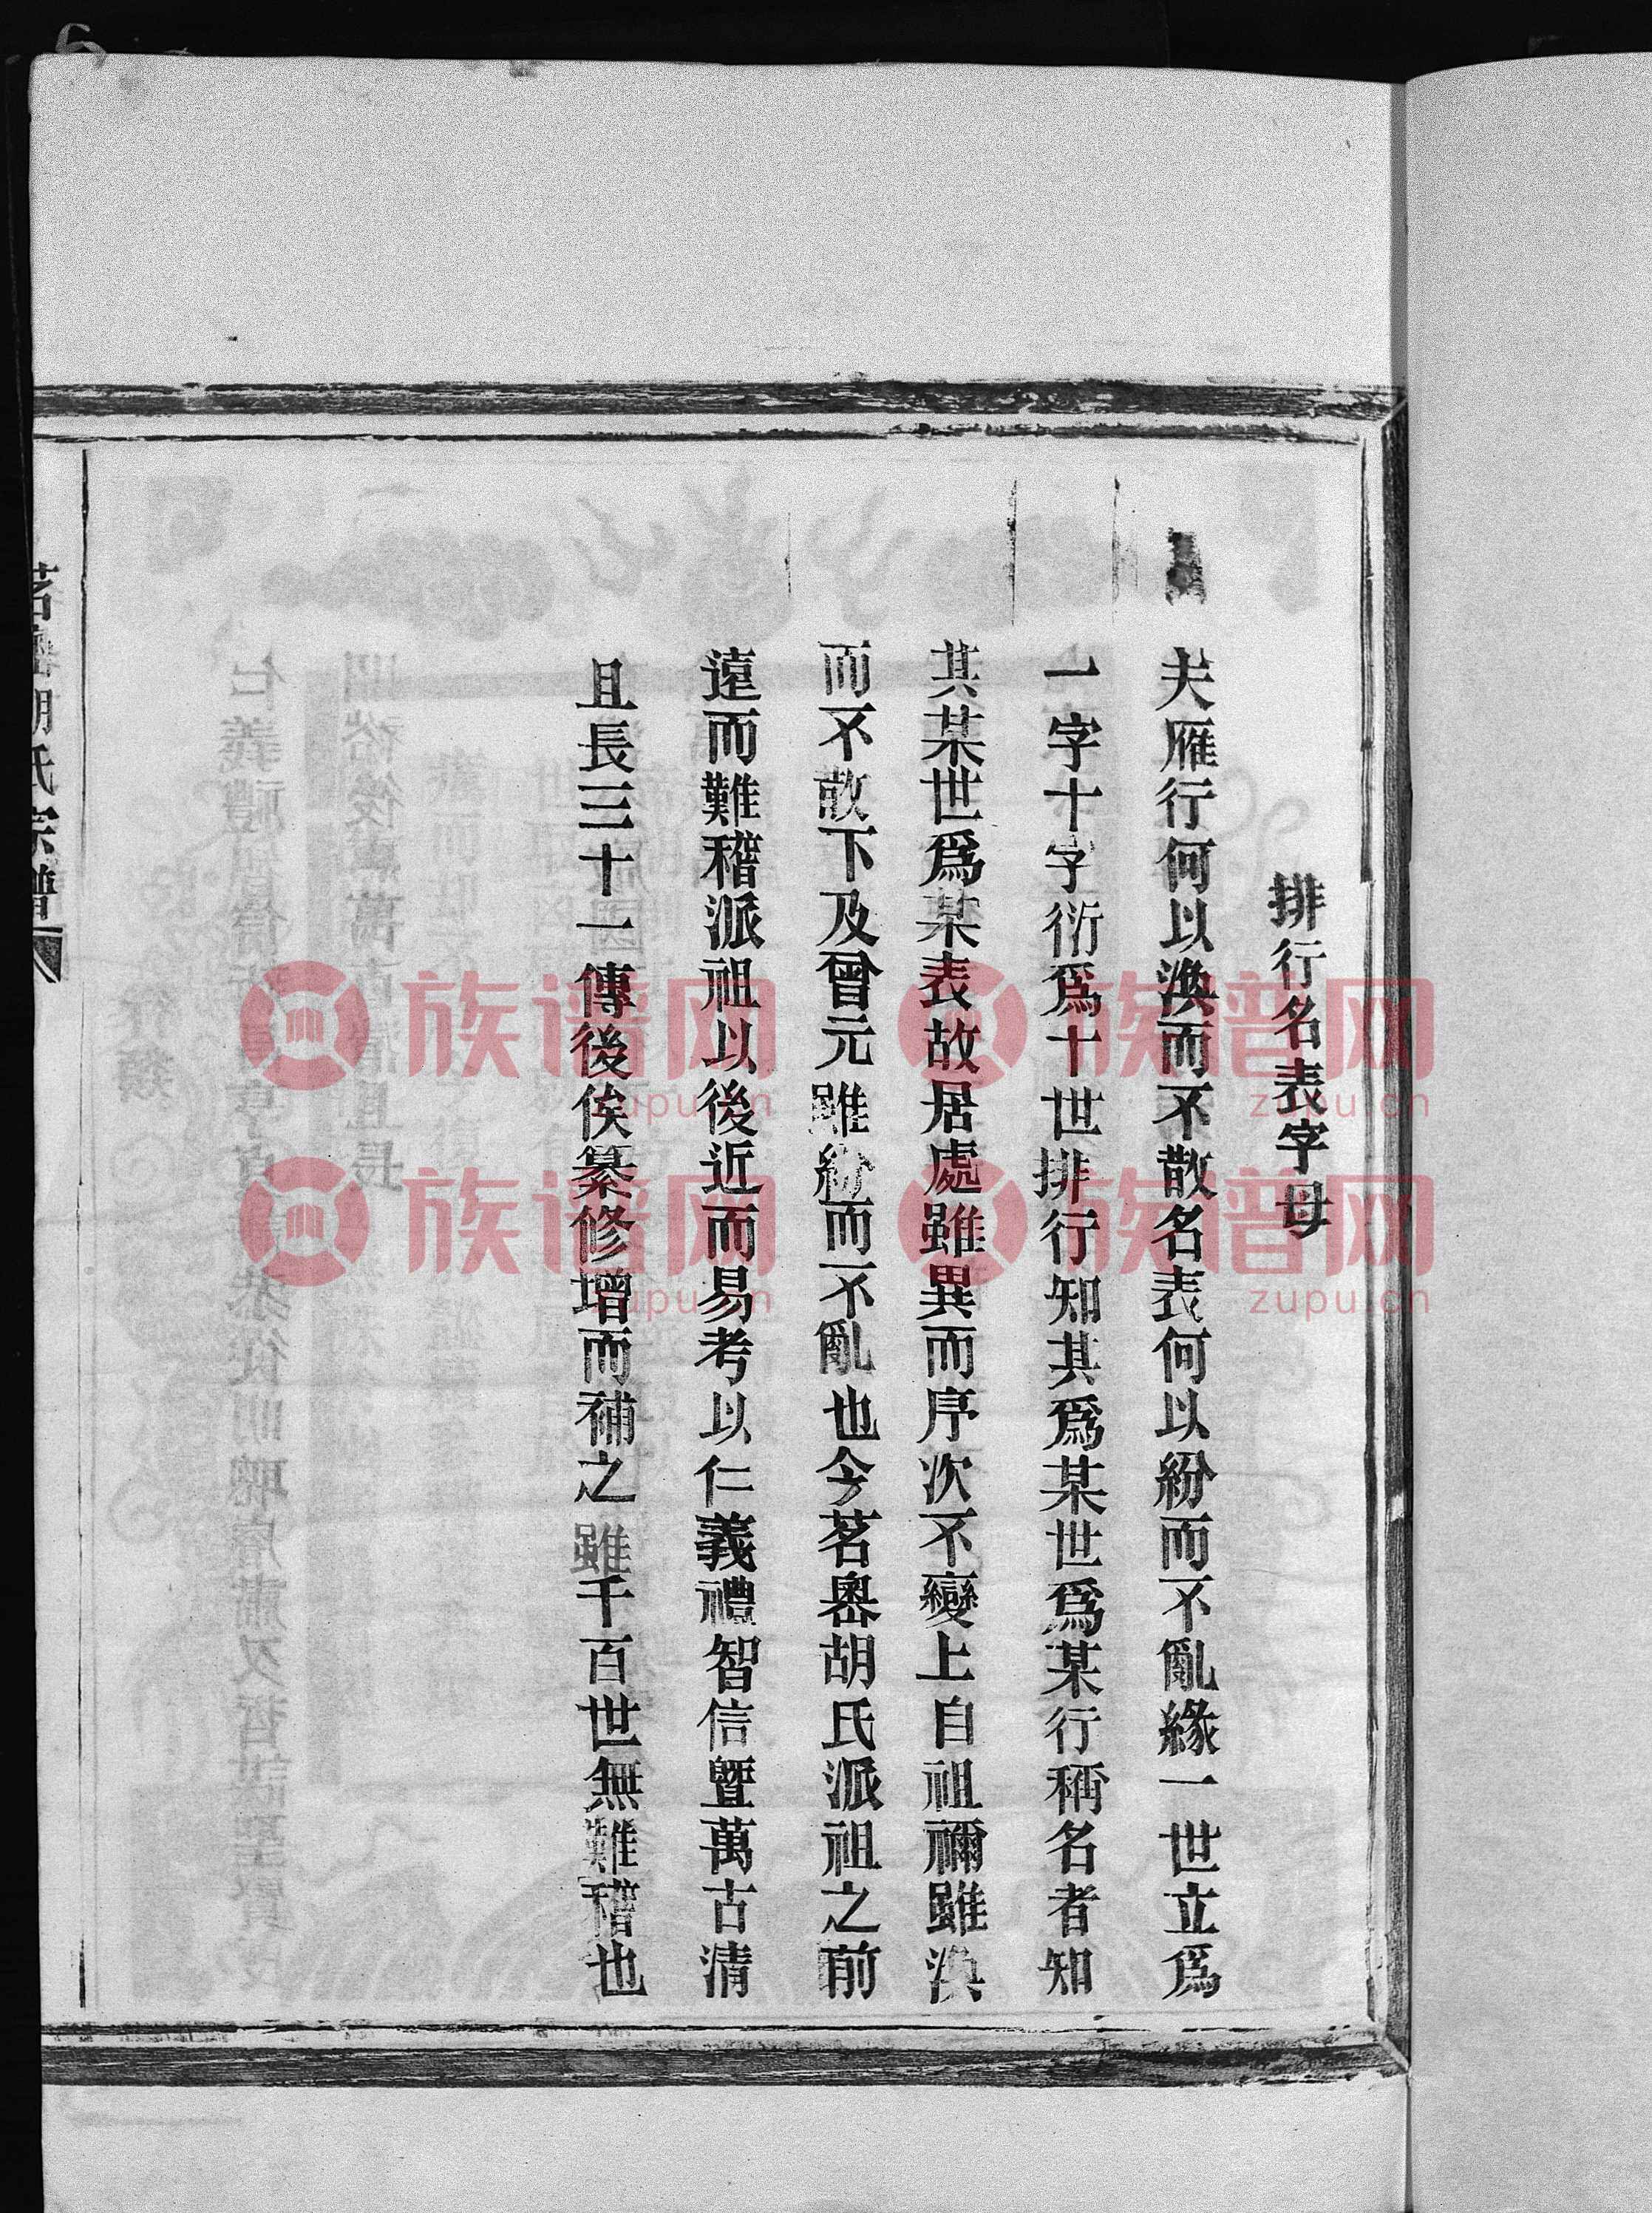 排行名表字母
夫雁行何以渙而不散名表何以紛而不亂緣一世立爲
一字十字衍爲十世排行知其爲某世爲某行稱名者知
其某世爲某表故居處雖異而序次不變上自祖禰雖渙
而不散下及曾元雖紛而不亂也今茗嶴胡氏派祖之前
遠而難稽派祖以後近而易考以仁義禮智信暨萬古清
且長三十一傳後俟纂修增而補之雖千百世無難稽也
茗嶴胡氏宗譜
族谱网
zupu.cn
族谱网
zupu.cn
族谱网
zupu.cn
族谱网
zupu.cn